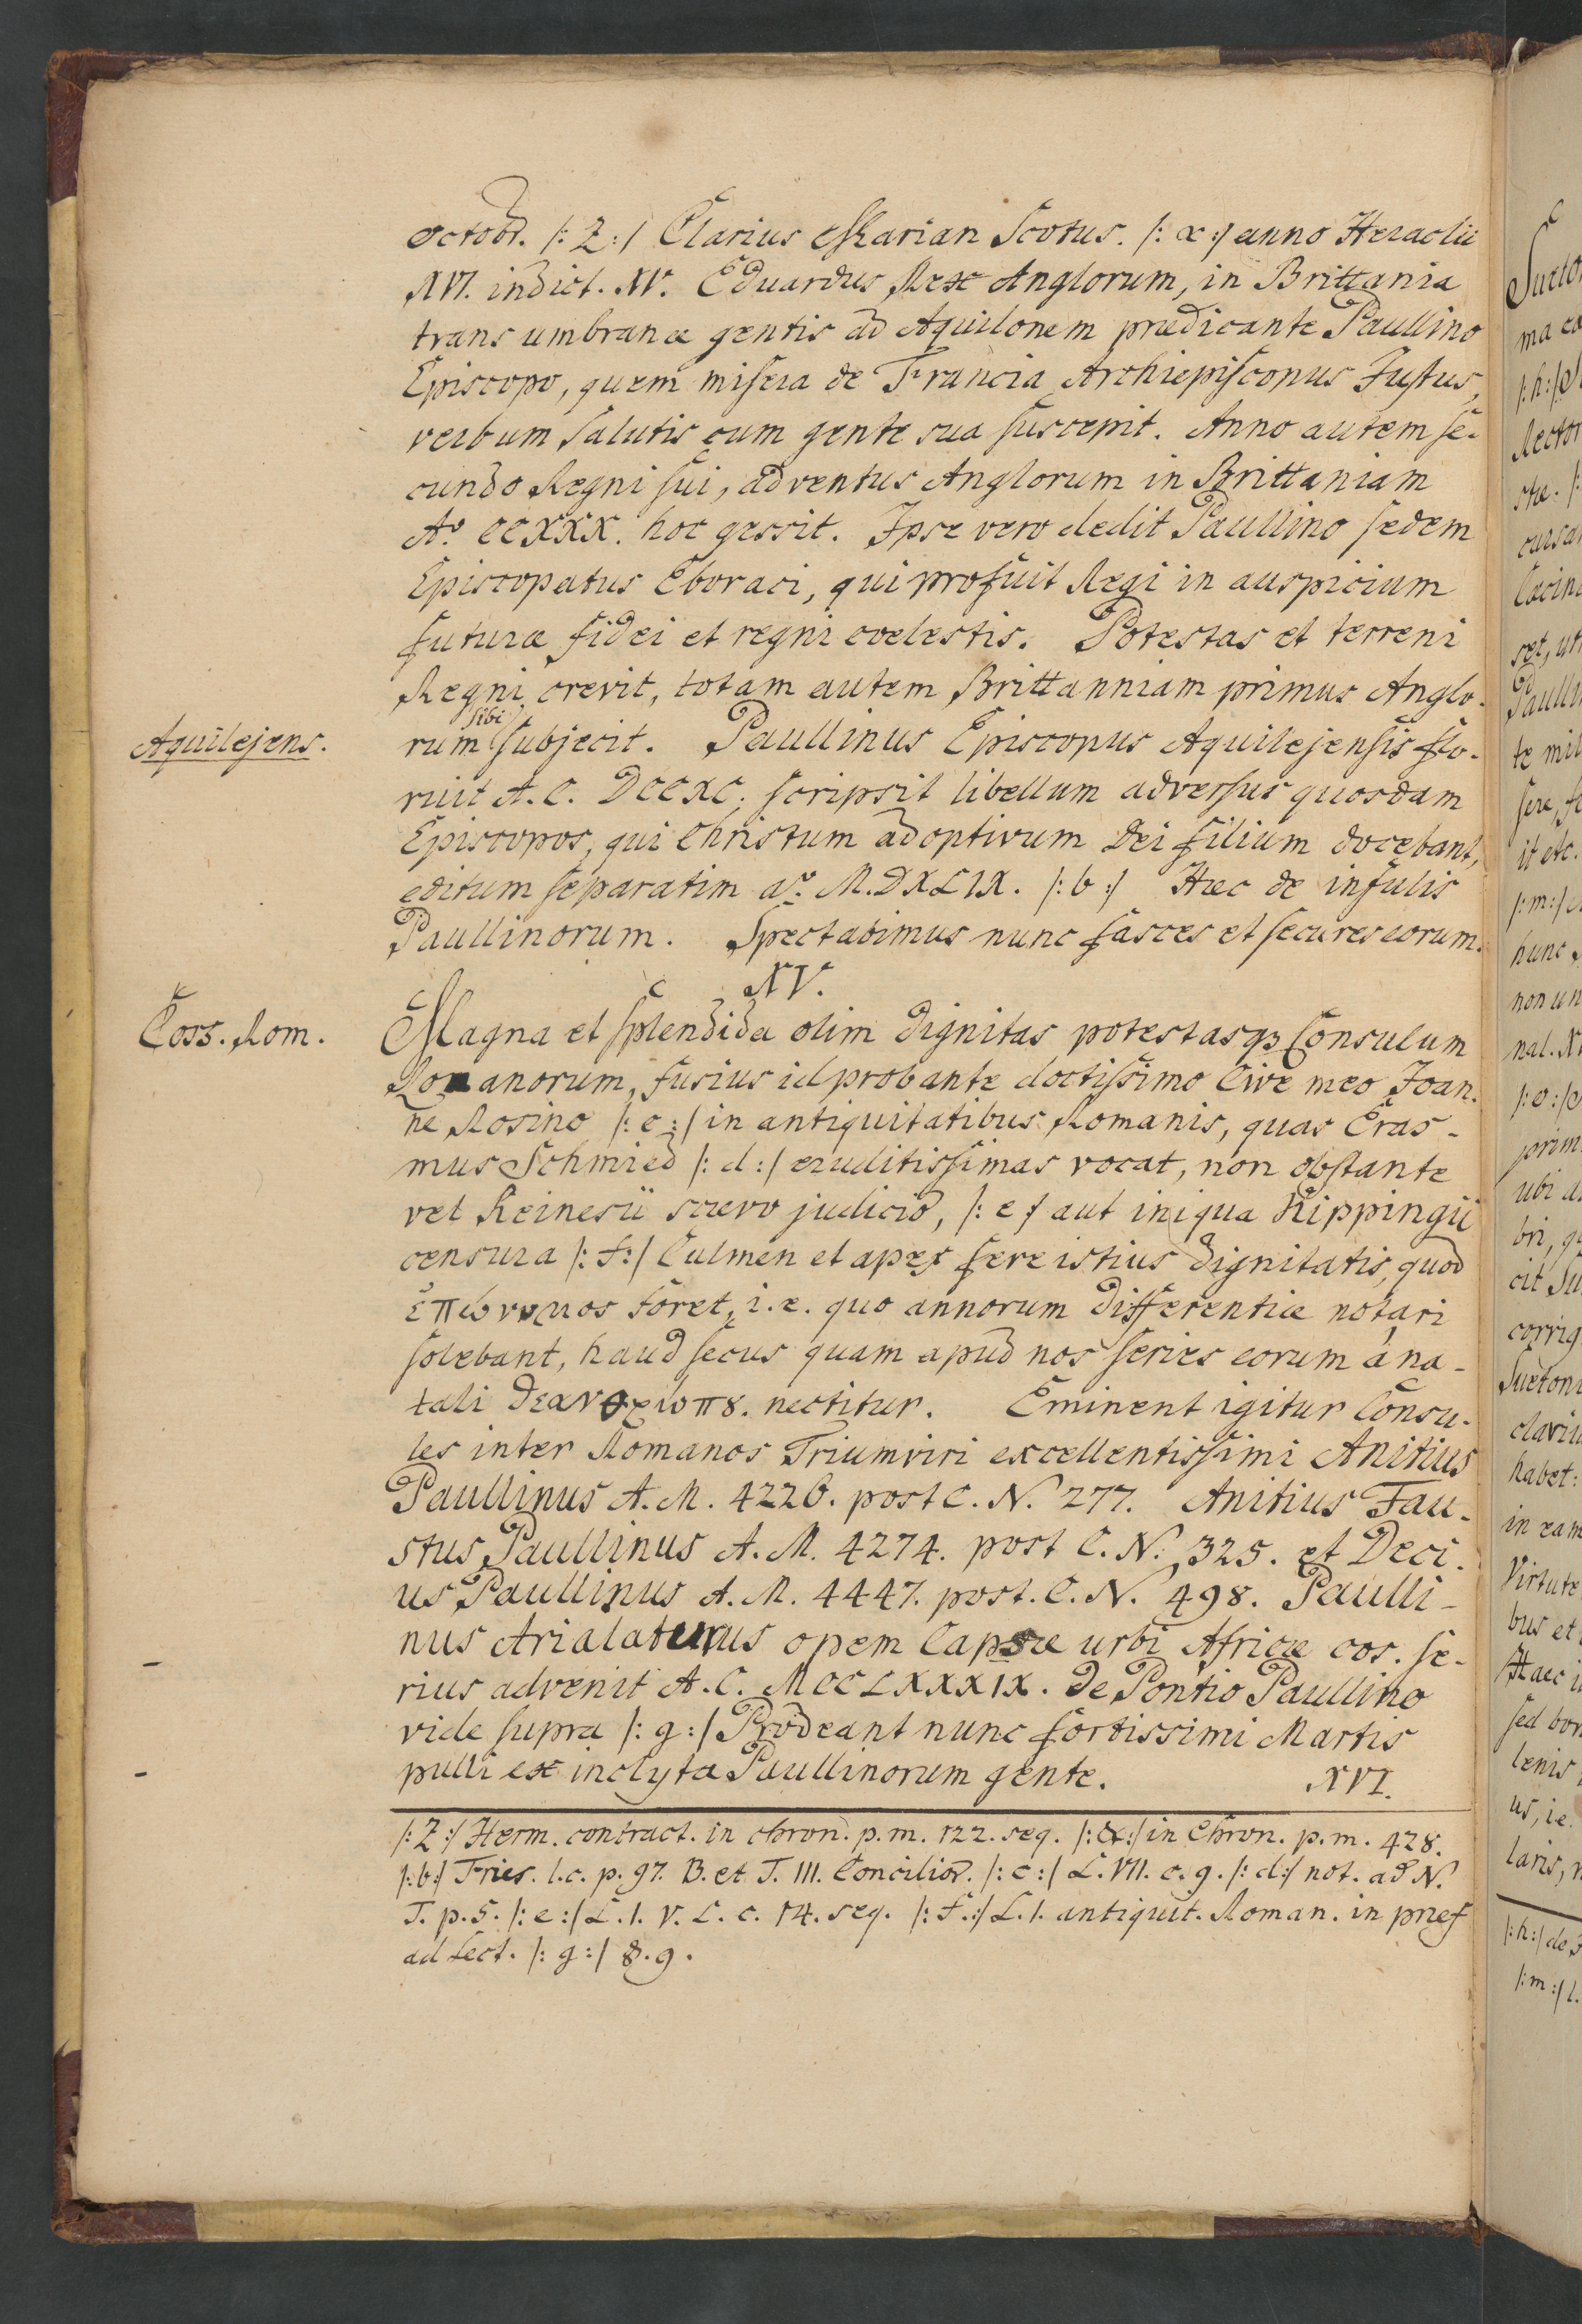 Octobr. /: Z :/ Clarius Marian Scotus. /: α :/ anno Heraclii
XVI. indict. XV. Eduardus Rex Anglorum, in Brittania
trans umbranæ gentis ad Aquilonem prædicante Paullino
Episcopo, quem misera de Francia Archiepiscopus Justus,
verbum salutis cum gente sua suscepit. Anno autem se-
cundo Regni sui, adventus Anglorum in Brittaniam
Aº. CCXXX. hoc gessit. Ipse vero dedit Paullino sedem
Episcopatus Eboraci, qui profuit Regi in auspicium
futuræ fidei et regni coelestis. Potestas et terreni
Regni crevit, totam autem Brittanniam primus Anglo-
Aquilejens.
rum sibi subjecit. Paullinus Episcopus Aquilejensis flo-
ruit A. C. DCCXC. scripsit libellum adversus quosdam
Episcopos, qui Christum adoptivum Dei filium docebant,
editum separatim aº. M.DXLIX. /: b :/ Hæc de infulis
Paullinorum. Spectabimus nunc fasces et secures eorum.
XV.
Coss. Rom.
Magna et splendida olim dignitas potestasqꝫ Consulum
Romanorum, fusius id probante doctissimo Cive meo Joan-
ne Rosino /: c :/ in antiquitatibus Romanis, quas Eras-
mus Schmied /: d :/ eruditissimas vocat, non obstante
vel Reinesii scævo judicio, /: e :/ aut iniqua Kippingii
censura /: f :/ Culmen et apex fere istius dignitatis, quod
ἐπώνυμος foret, i.e. quo annorum differentiæ notari
solebant, haud secus quam apud nos series eorum á na-
tali θεανθρώπȣ. nectitur. Eminent igitur Consu-
les inter Romanos Triumviri excellentissimi Anitius
Paullinus A. M. 4226. post C. N. 277. Anitius Fau-
stus Paullinus A. M. 4274. post C. N. 325. et Deci-
us Paullinus A. M. 4447. post. C. N. 498. Paulli-
nus Arialaturus opem Capsæ urbi Africæ cos. se-
rius advenit A. C. MCCLXXXIX. de Pontio Paullino
vide supra /: g :/ Prodeant nunc fortissimi Martis
pulli ex inclyta Paullinorum gente. XVI.
/: Z :/ Herm. contract. in chron. p. m. 122. seq. /: α :/ in Chron. p. m. 428.
/: b :/ Fries. l. c. p. 97. B. et T. III. Concilior. /: c :/ L. VII. c. 9. /: d :/ not. ad N.
T. p. 5. /: e :/ L. 1. V. L. c. 14. seq. /: f :/ L. 1. antiquit. Roman. in præf
ad Lect. /: g :/ §. 9.